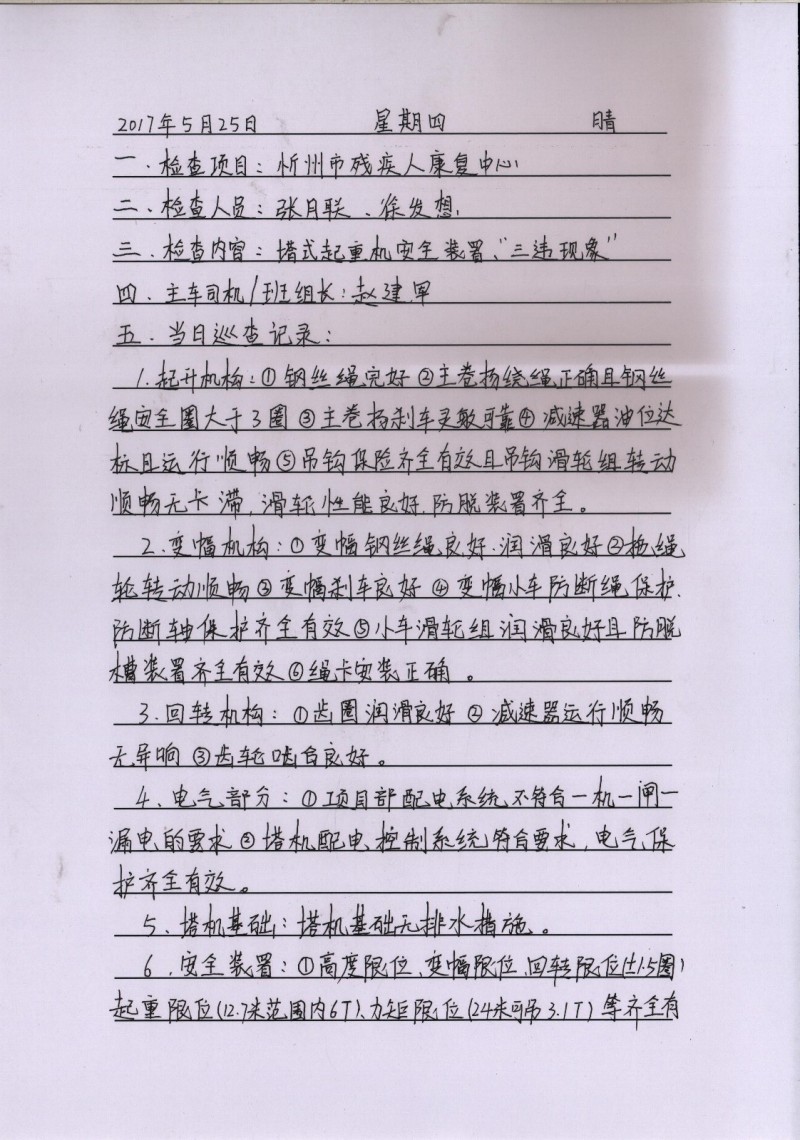 2017年5月25日 星期四 晴
一、检查项目：忻州市残疾人康复中心
二、检查人员：张月联、徐发想
三、检查内容：塔式起重机安全装置、“三违现象”
四、主车司机/班组长：赵建军
五、当日巡查记录：
1.起升机构：①钢丝绳完好②主卷扬绕绳正确且钢丝
绳安全圈大于3圈③主卷扬刹车灵敏可靠④减速器油位达
标且运行顺畅⑤吊钩保险齐全有效且吊钩滑轮组转动
顺畅无卡滞，滑轮性能良好，防脱装置齐全。
2.变幅机构：①变幅钢丝绳良好、润滑良好②拖绳
轮转动顺畅③变幅刹车良好④变幅小车防断绳保护、
防断轴保护齐全有效⑤小车滑轮组润滑良好且防脱
槽装置齐全有效⑥绳卡安装正确。
3.回转机构：①齿圈润滑良好②减速器运行顺畅
无异响③齿轮啮合良好。
4、电气部分：①项目部配电系统不符合一机一闸一
漏电的要求②塔机配电控制系统符合要求，电气保
护齐全有效。
5、塔机基础：塔机基础无排水措施。
6、安全装置：①高度限位、变幅限位、回转限位(±1.5圈)
起重限位(12.7米范围内6T)、力矩限位(24米可吊3.1T)等齐全有